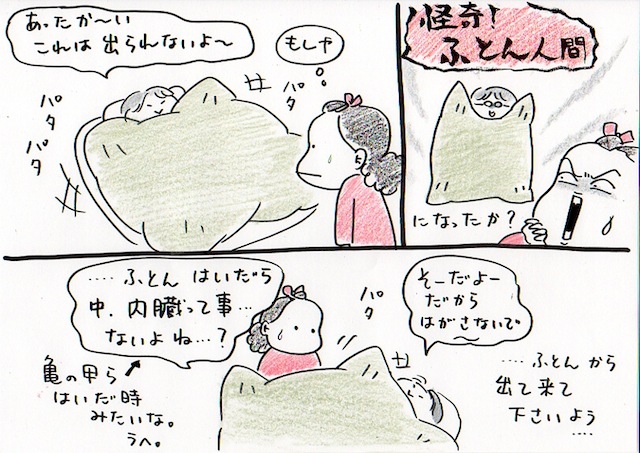 あったか〜い
これは 出られないよ〜
パタ
パタ
もしや
怪奇!
ふとん人間
になったか?
‥‥ ふとん はいだら
中、内臓って事…
ないよね…?
亀の甲ら
はいだ時
みたいな。
うへ。
パタ
そーだよー
だから
はがさないで
‥‥ ふとん から
出て来て
下さいよう
‥‥